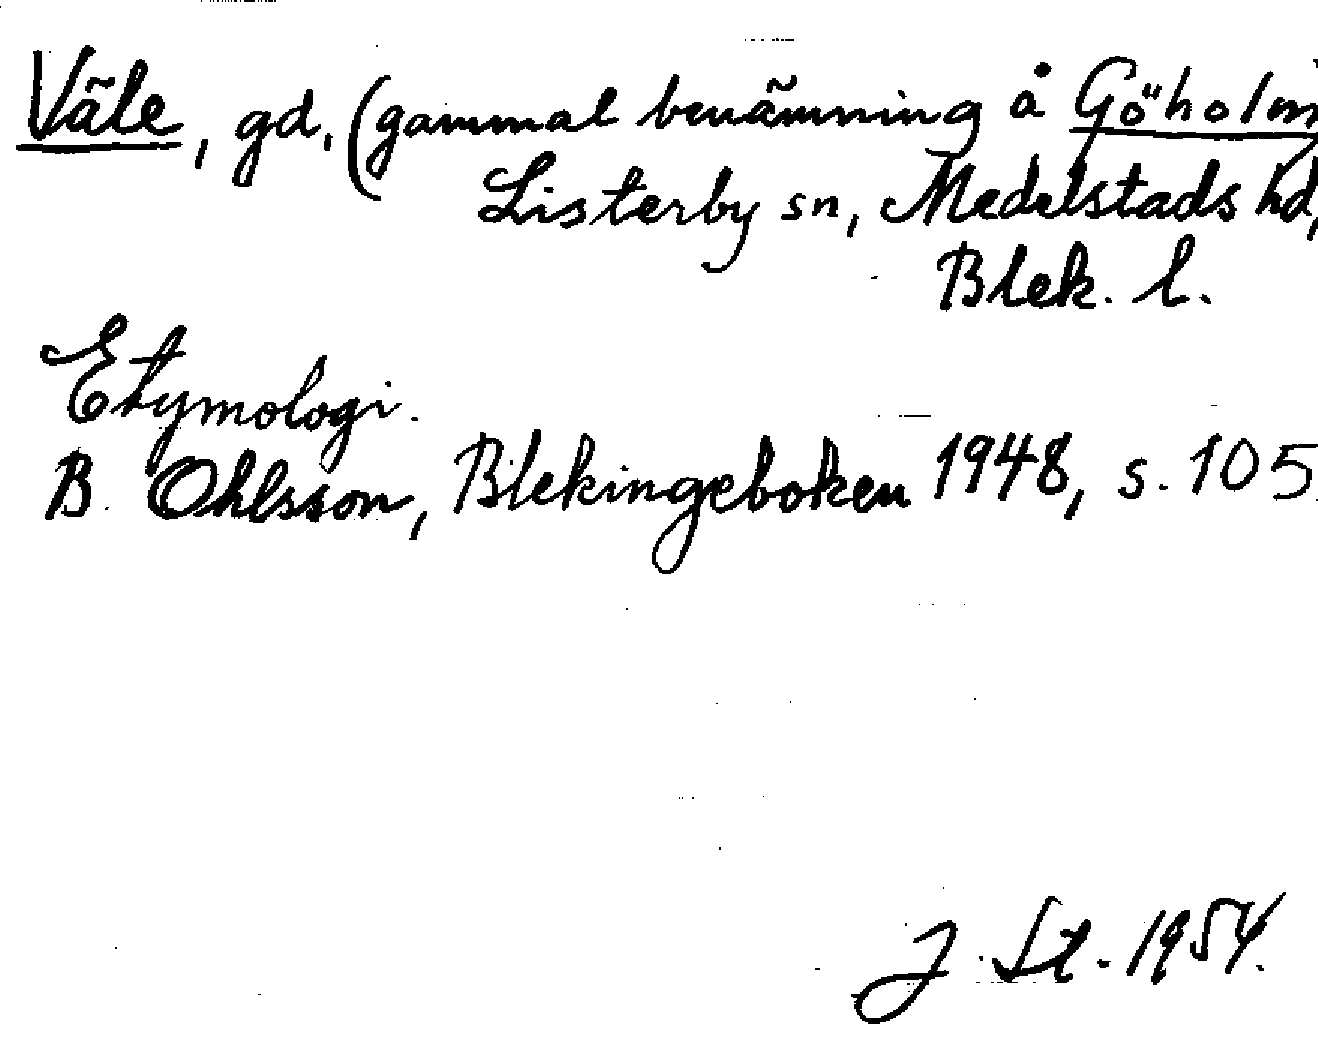 Väle, gd. (gammal benämning å Göholm
Listerby sn, Medelstads hd,
Blek. l.
Etymologi.
B. Ohlsson, Blekingeboken 1948, s. 105.
J. St. 1954.